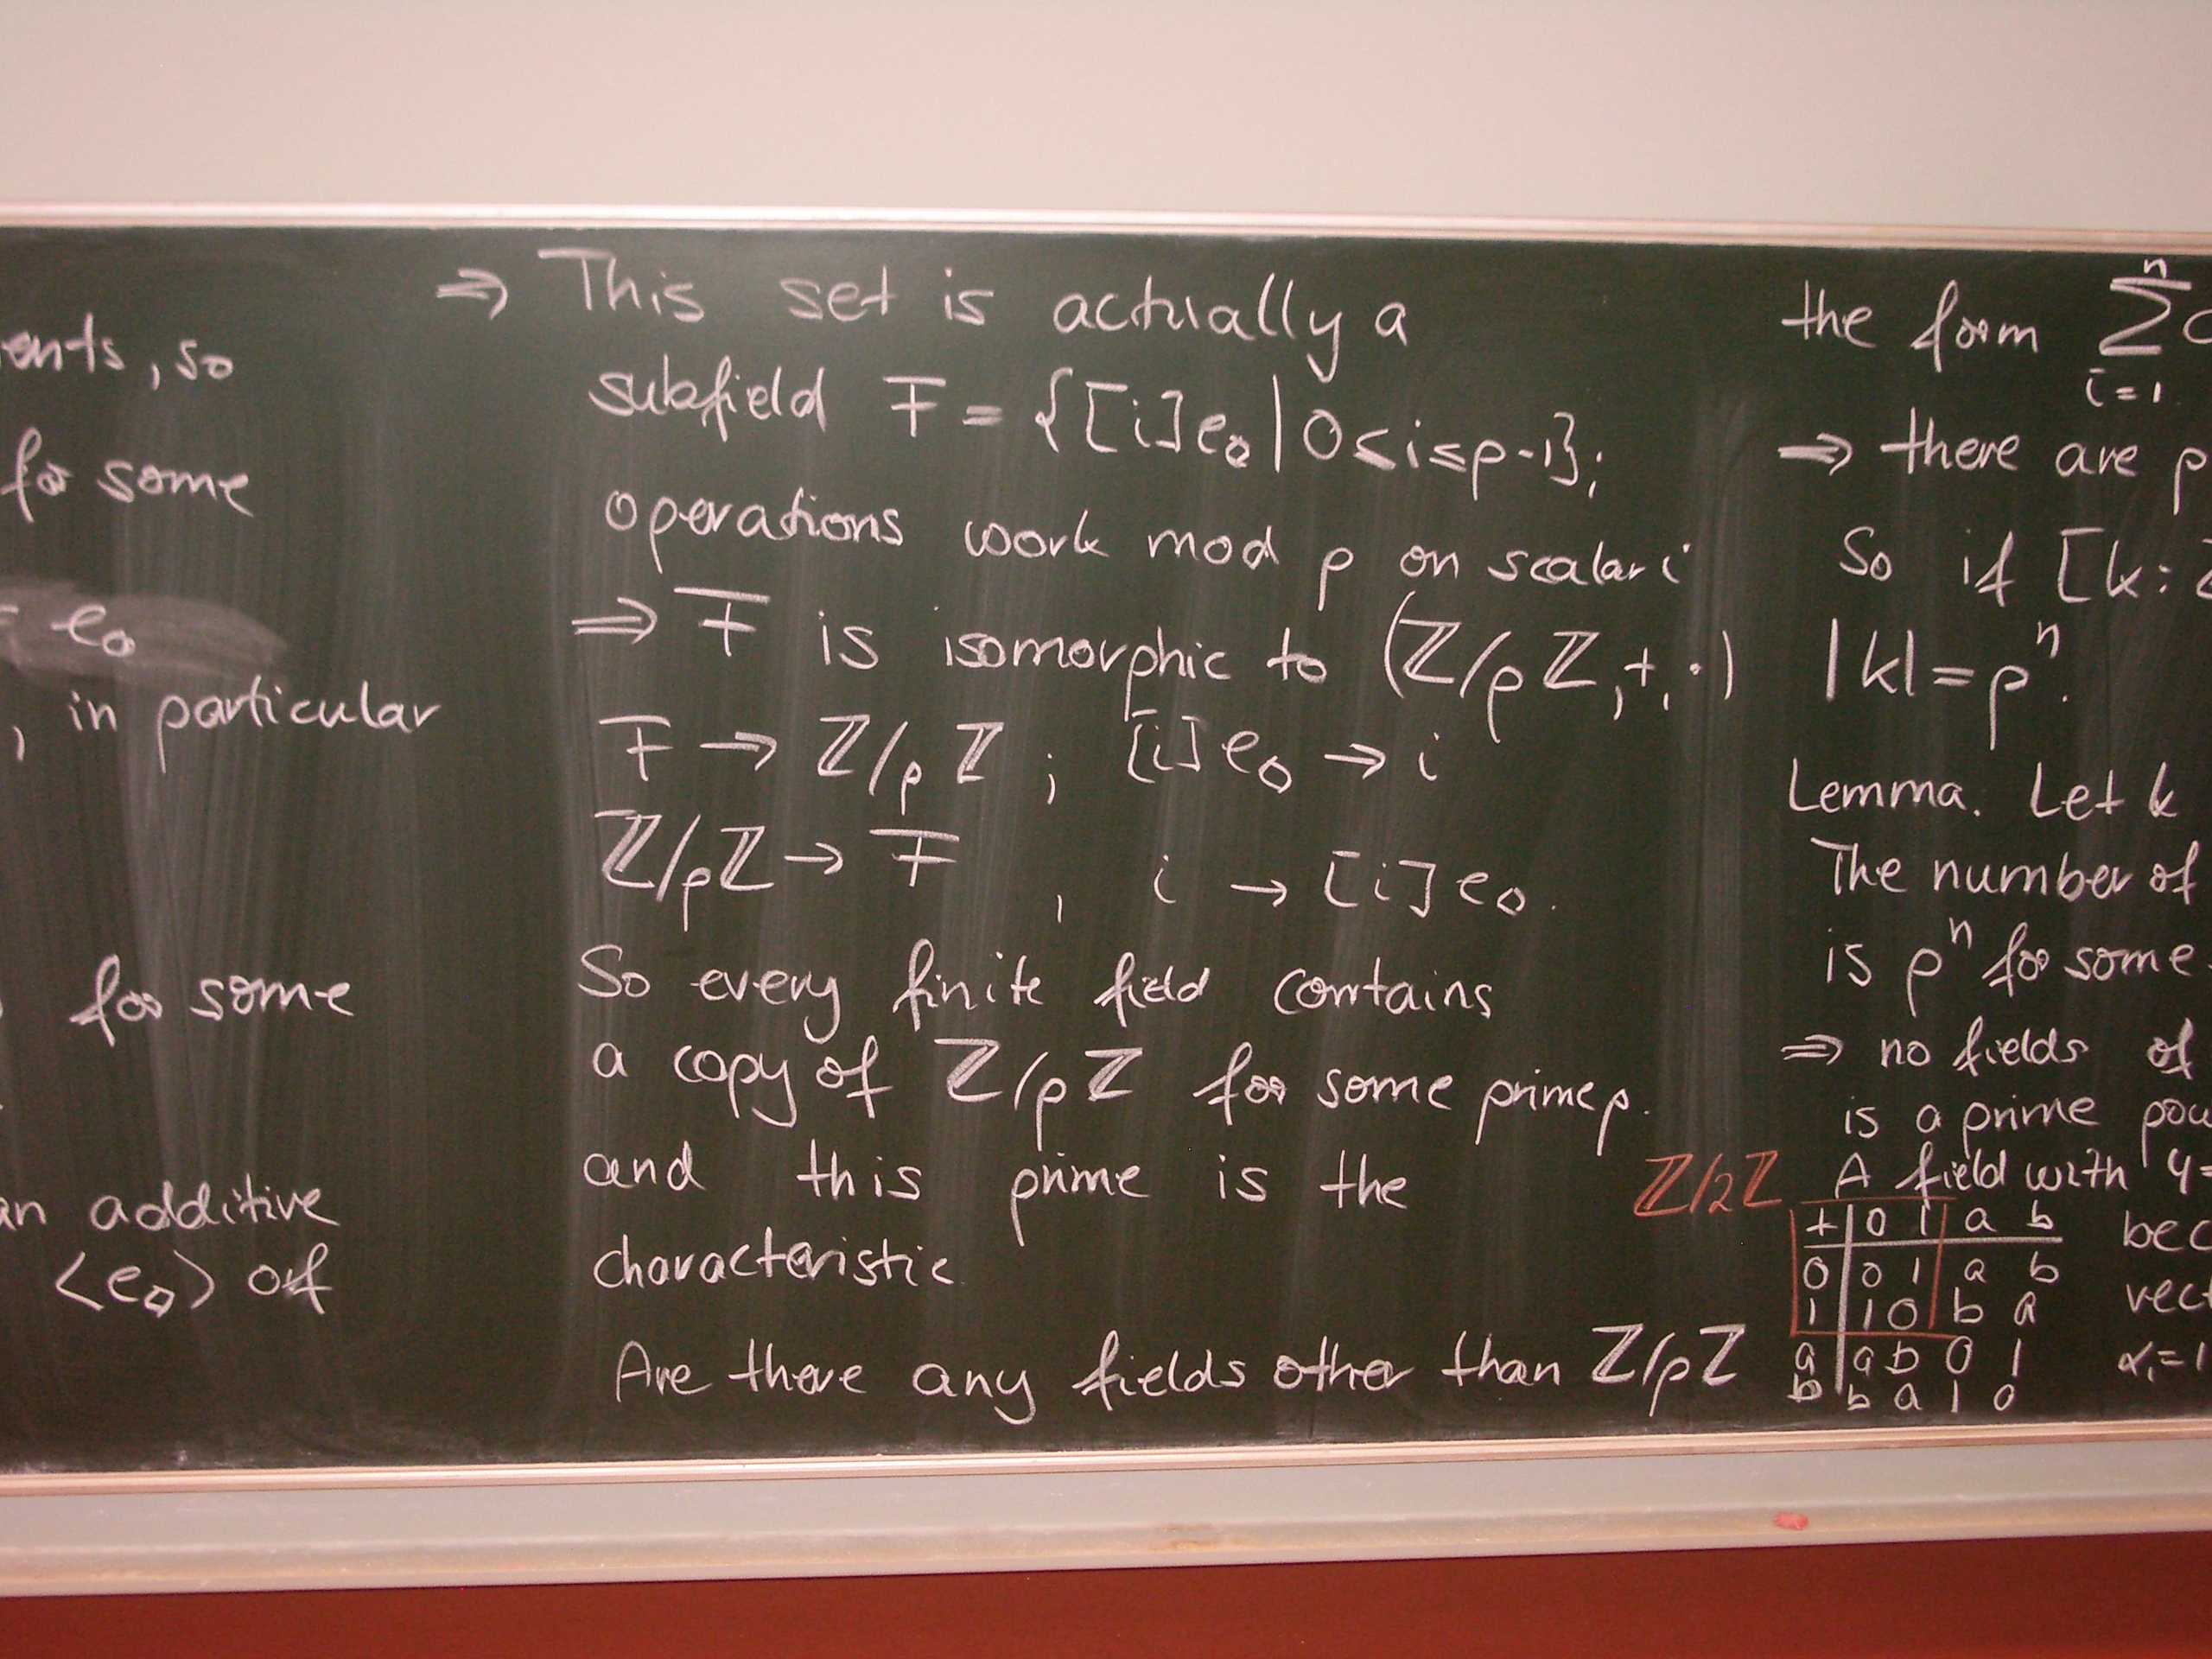 ents, so
for some
= e₀
, in particular
for some
an additive
<e₀> of
⇒ This set is actually a
subfield F = {[i]e₀ | 0≤i≤p-1};
operations work mod p on scalar i
⇒ F is isomorphic to (ℤ/pℤ,+,·)
F → ℤ/pℤ ; [i]e₀ → i
ℤ/pℤ → F , i → [i]e₀.
So every finite field contains
a copy of ℤ/pℤ for some prime p.
and this prime is the
characteristic
Are there any fields other than ℤ/pℤ
the form n∑i=1 c
⇒ there are p
So if [k:ℤ
|k|=pⁿ.
Lemma. Let k
The number of
is pⁿ for some
⇒ no fields of
is a prime pow
A field with 4=
ℤ/2ℤ
+ | 0 1 a b
0 | 0 1 a b
1 | 1 0 b a
a | a b 0 1
b | b a 1 0
bec
vect
α₁=1